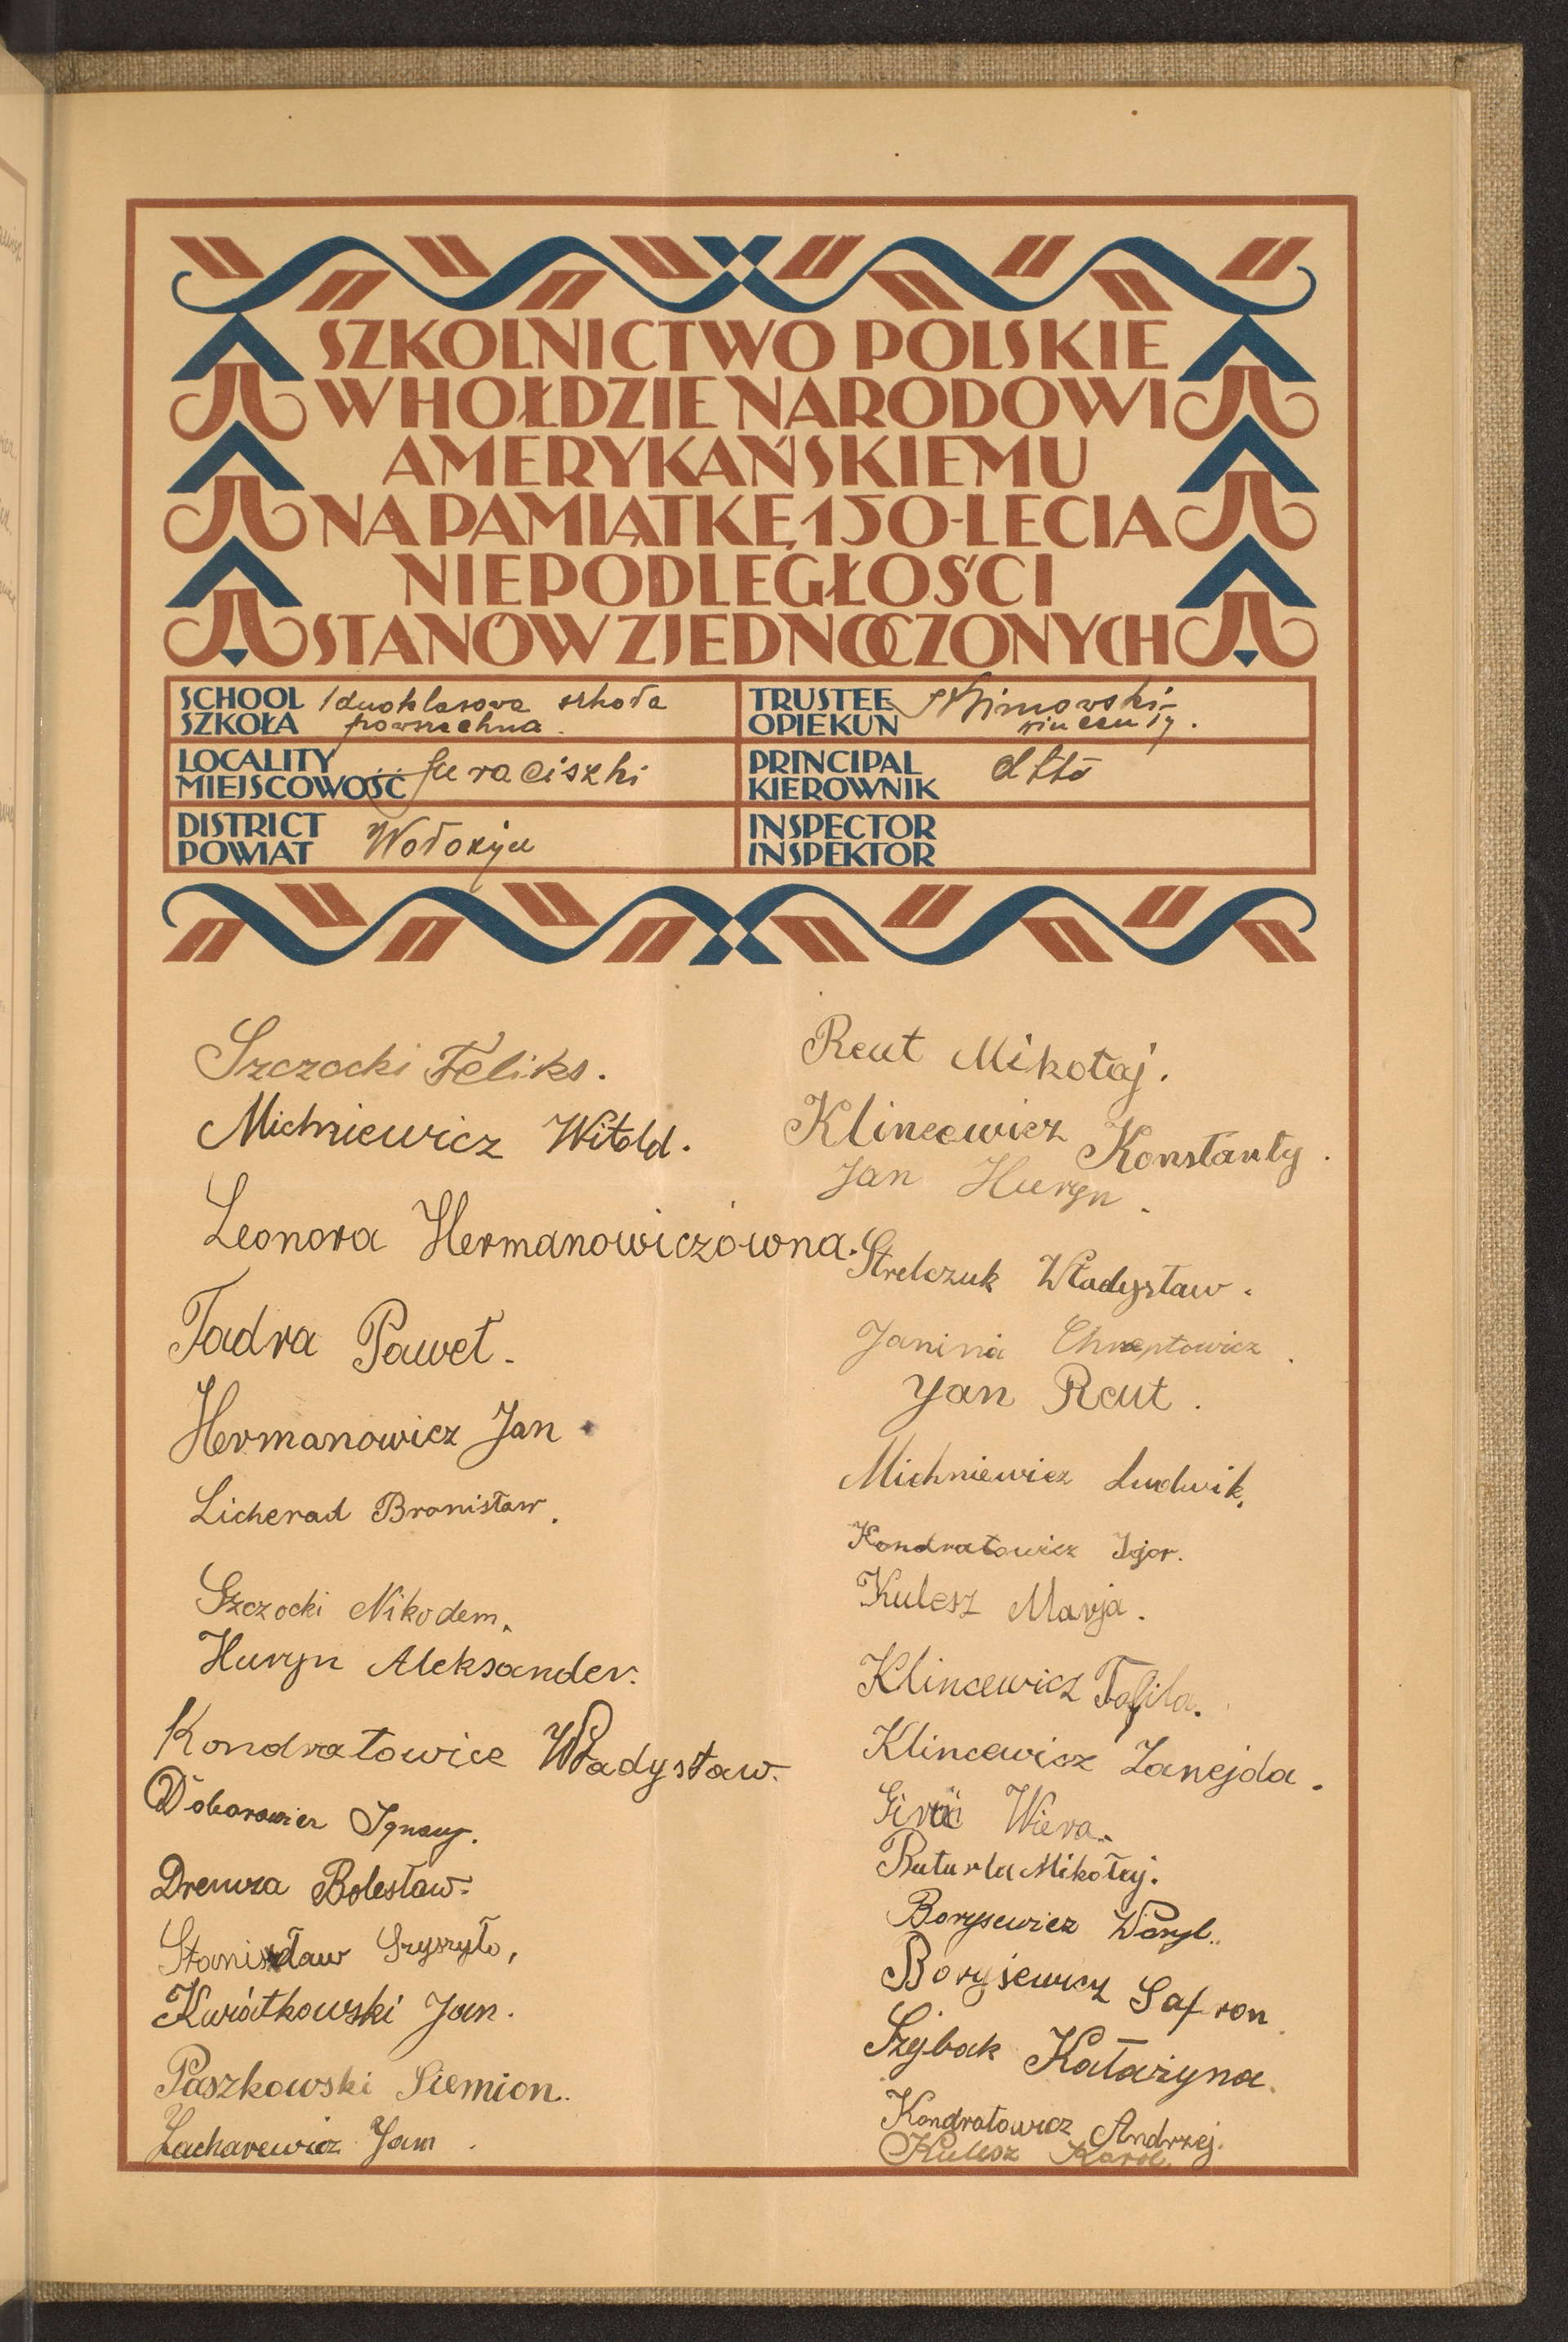 SZKOLNICTWO POLSKIE
W HOŁDZIE NARODOWI
AMERYKAŃSKIEMU
NA PAMIĄTKĘ 150-LECIA
NIEPODLEGŁOŚCI
STANÓW ZJEDNOCZONYCH
SCHOOL
SZKOŁA
dwuklasowa szkoła
powszechna.
TRUSTEE
OPIEKUN
LOCALITY
MIEJSCOWOŚĆ
Juraciszki
PRINCIPAL
KIEROWNIK
dtto
DISTRICT
POWIAT
Wołożyn
INSPECTOR
INSPEKTOR
Szczocki Feliks.
Michniewicz Witold.
Leonora Hermanowiczówna.
Tadra Paweł.
Hermanowicz Jan
Licherad Bronisław.
Szczocki Nikodem.
Huryn Aleksander.
Kondratowicz Władysław.
Ignacy.
Drewza Bolesław.
Stanisław Szyszyło,
Kwiatkowski Jan.
Paszkowski Siemion.
Zacharewicz Jan.
Reut Mikołaj.
Klincewicz Konstanty.
Jan Huryn.
Strelczuk Władysław.
Janina Chreptowicz.
Jan Reut.
Michniewicz Ludwik.
Kondratowicz Igor.
Kulesz Marja.
Klincewicz Tofila.
Klincewicz Zanejda.
Wiera.
Buturla Mikołaj.
Borysewicz Wasyl.
Borysewicz Safron.
Szejbak Katażyna.
Kondratowicz Andrzej.
Kulesz Karol.